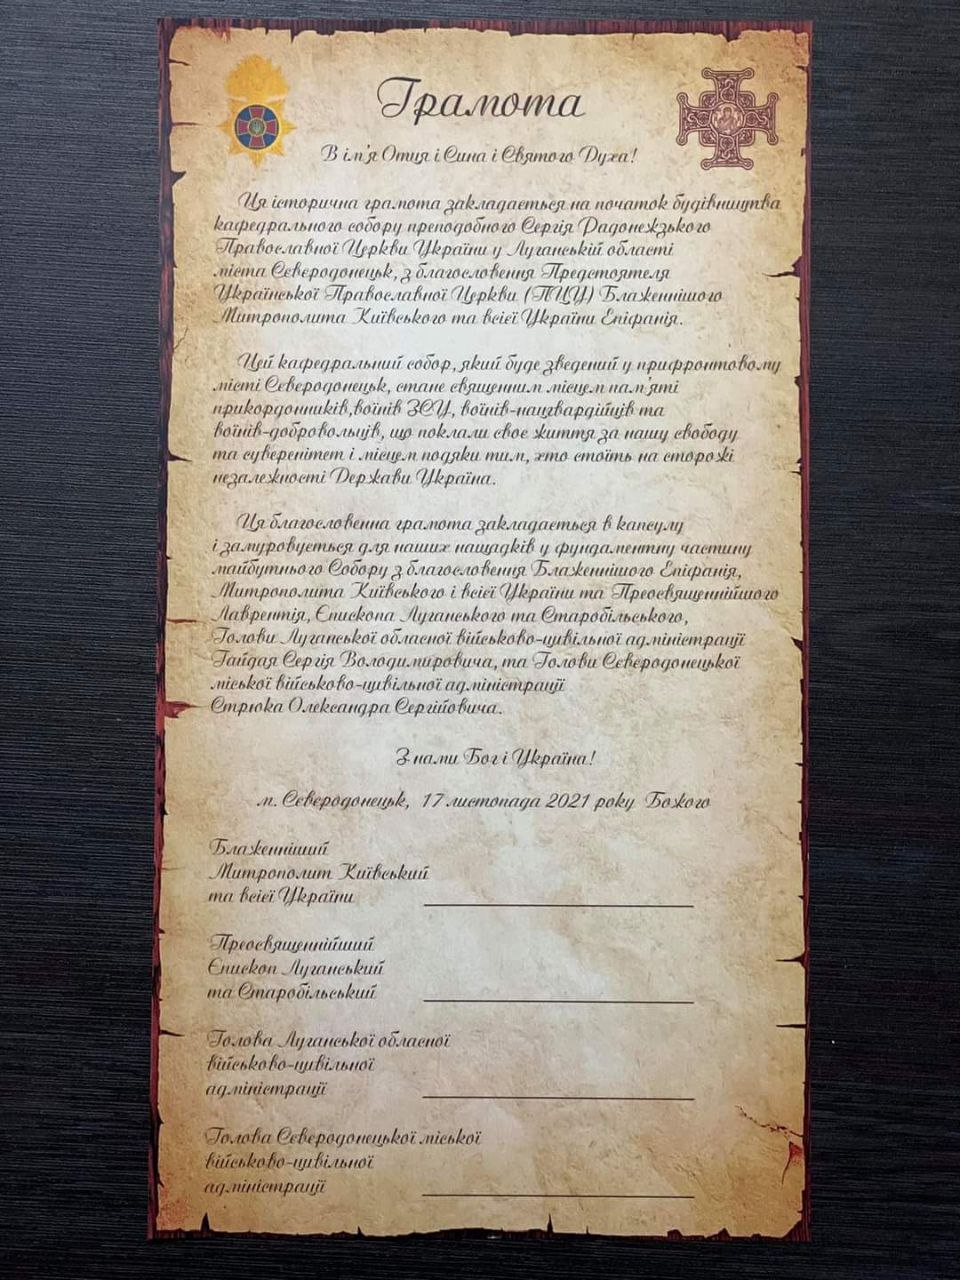 Грамота
В ім'я Отця і Сина і Святого Духа!
Ця історична грамота закладається на початок будівництва
кафедрального собору преподобного Сергія Радонежзького
Православної Церкви України у Луганській області
міста Сєверодонецьк, з благословення Предстоятеля
Української Православної Церкви (ПЦУ) Блаженнішого
Митрополита Київського та всієї України Епіфанія.
Цей кафедральний собор, який буде зведений у прифронтовому
місті Сєверодонецьк, стане священним місцем пам'яті
прикордонників,воїнів ЗСУ, воїнів-нацгвардійців та
воїнів-добровольців, що поклали своє життя за нашу свободу
та суверенітет і місцем подяки тим, хто стоїть на сторожі
незалежності Держави Україна.
Ця благословенна грамота закладається в капсулу
і замуровується для наших нащадків у фундаментну частину
майбутнього Собору з благословення Блаженнішого Епіфанія,
Митрополита Київського і всієї України та Преосвященнійшого
Лаврентія, Єпископа Луганського та Старобільського,
Голови Луганської обласної військово-цивільної адміністрації
Гайдая Сергія Володимировича, та Голови Сєверодонецької
міської військово-цивільної адміністрації
Стрюка Олександра Сергійовича.
З нами Бог і Україна!
м. Сєверодонецьк, 17 листопада 2021 року Божого
Блаженніший
Митрополит Київський
та всієї України
Преосвященнійший
Єпископ Луганський
та Старобільський
Голова Луганської обласної
військово-цивільної
адміністрації
Голова Сєверодонецької міської
військово-цивільної
адміністрації